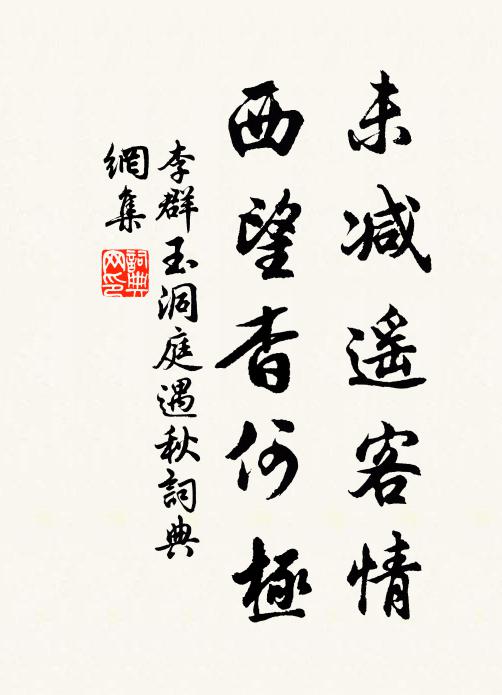 未减遥客情
西望杳何極
李群玉洞庭遇秋詞典
網集
詞典
网印